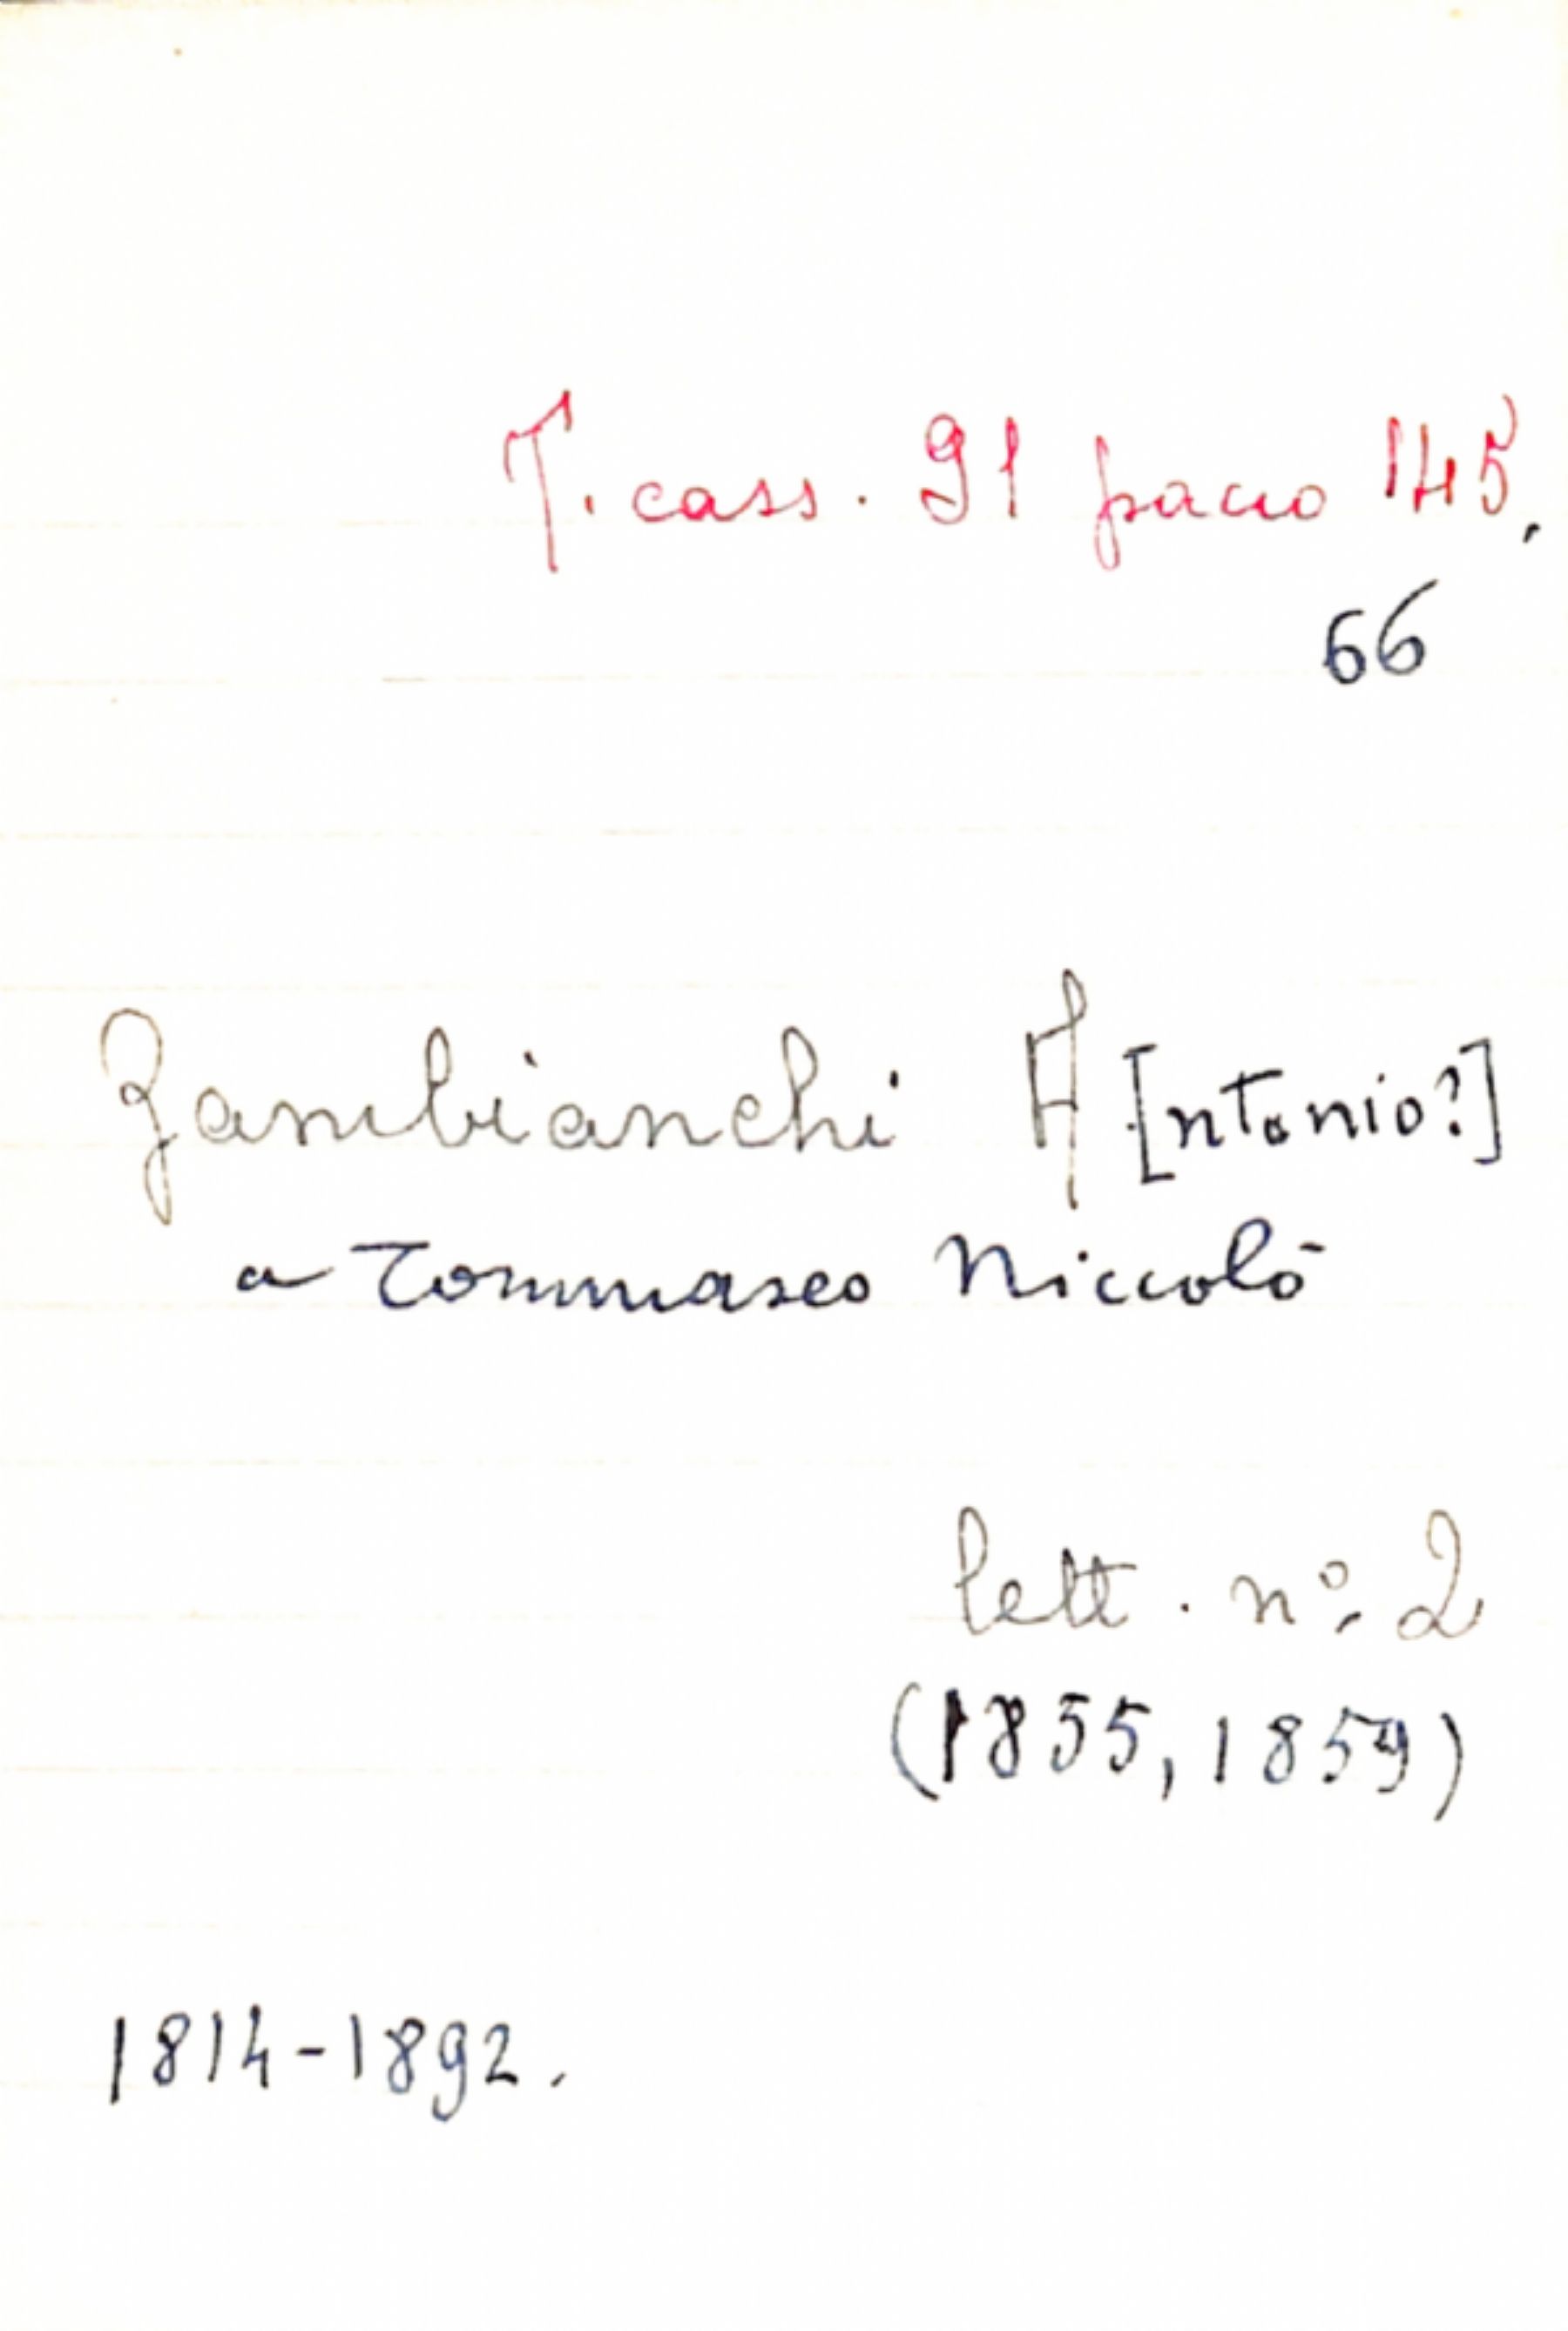 T. cass. 91 pacco 145,
66
Zambianchi A[ntonio?]
a Tommaseo Niccolò
lett. nº 2
(1855, 1859)
1814-1892.